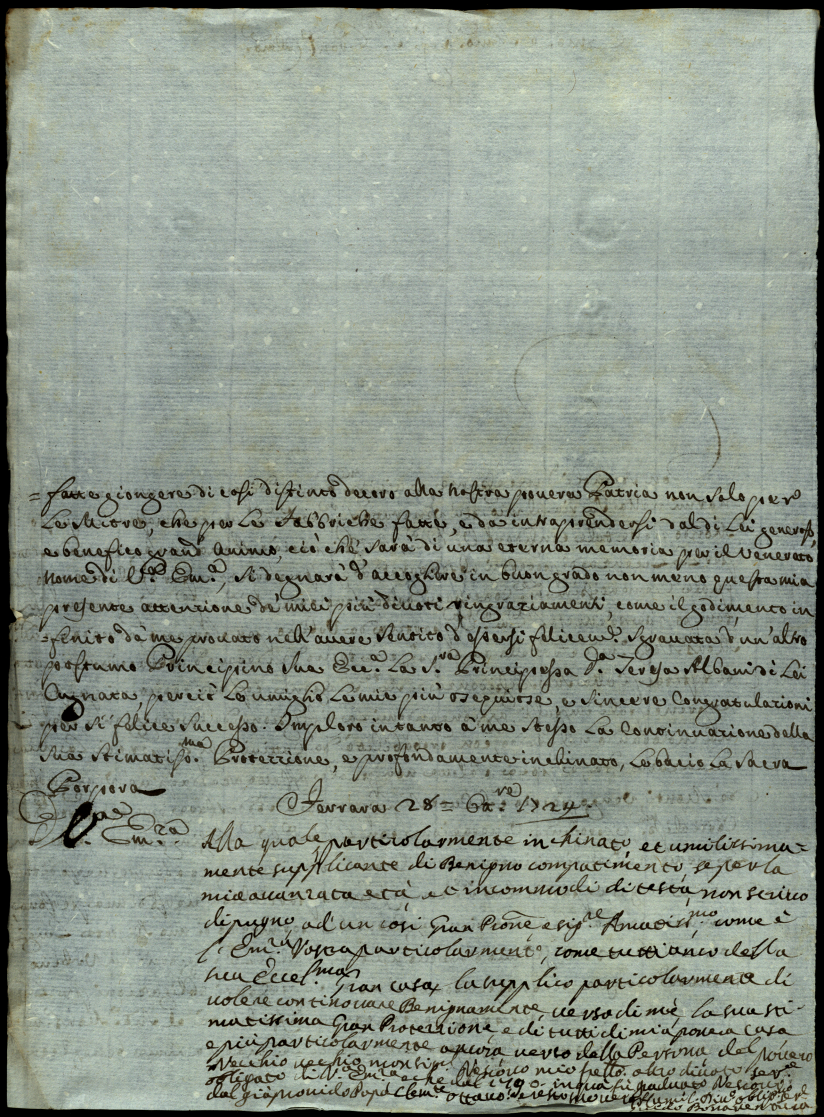 = fatte giongere di così distinto decoro alla Nostra povera Patria non solo per
le Mitre, che per le Fabbriche fatte, e da intraprendersi dal di Lei generoso,
e benefico grand' Animo, ciò che sarà di una eterna memoria per il Venerato
Nome di V.ra Em.a, si degnarà d'accogliere in buon grado non meno questa mia
presente attenzione de' miei più divoti ringraziamenti, come il godimento in
=finito da me provato nell'avere sentito d'essersi felicem.e sgravata d'un'altro
postumo Principino sua Ecc.a la S.ra Principessa D.a Teresa Albani di Lei
Cugnata, perciò le umiglio le mie più ossequiose, e sincere Congratulazioni
per sì felice successo. Imploro intanto à me stesso la Continuazione della
sua Stimatiss.ma Protezzione, e profondamente inclinato, le bacio la Sacra
Porpora
Ferrara 28 = 1724.
Em.ra
Alla quale particolarmente inchinato, et umilissima-
mente supplicante di Benigno compatimento, se per la
mia avanzata età et incommodi di testa, non scrivo
di pugno, ad un così Gran Pron.e e sig.re Amatiss.mo come è
l'Em.ra Vostra particolarmente, come tutti anco della
sua Eccel.ma Gran casa, la supplico particolarmente di
volere continovare Benignamente, verso di me, la sua sti-
matissima Gran Protezzione e di tutti di mia povera casa
e più particolarmente ancora verso della Persona del povero
Vecchio vecchio Vescovo mio fello
obligato di V.a Em.ra e che dal
dal già Papa Clem.e ottavo